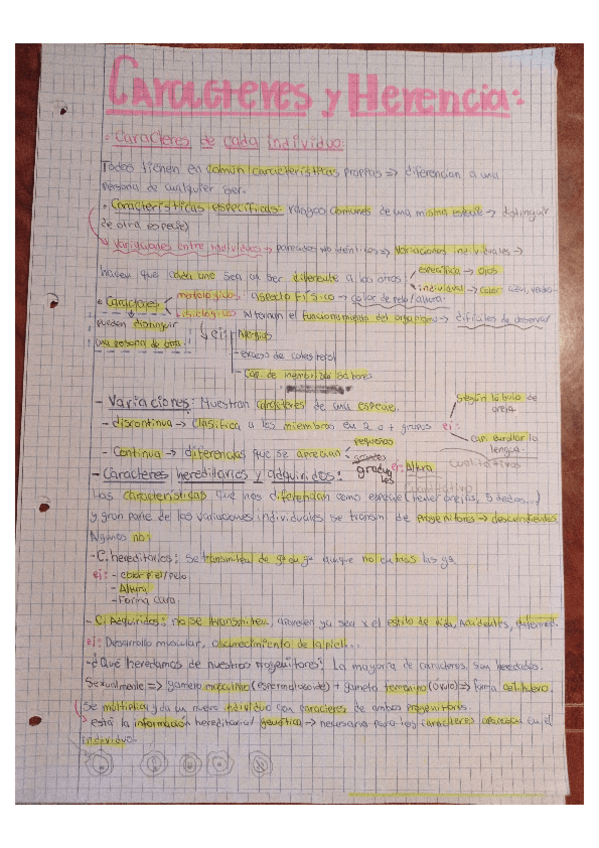 Caracteres y Herencia:
- Caracteres de cada individuo:
Todos tienen en común características propias => diferencian a una
persona de cualquier ser.
• Características específicas: rasgos comunes de una misma especie -> distinguir
de otra especie)
Variaciones entre individuos -> parecidos no idénticos => Variaciones individuales ->
hacen que cada uno sea un ser diferente a los otros
específica -> ojos
individual -> color
• Caracteres
morfológicos: aspecto físico -> color de pelo/altura.
fisiológicos: el funcionamiento del organismo -> difíciles de observar
pueden distinguir
una persona de otra.
ej: - Alergias
- exceso de colesterol
- Cap. de
- Variaciones: Muestran caracteres de una especie.
Según lóbulo de
oreja
- discontinua -> clasifica a los miembros en 2 o + grupos ej:
cap. enrollar la
lengua.
- Continua -> diferencias que se aprecian
pequeñas
graduales
ej: Altura
cualitativos
- Caracteres hereditarios y adquiridos:
Las características que nos diferencian como especie (tener orejas, 5 dedos...)
y gran parte de las variaciones individuales se transm de progenitores -> descendientes
Algunos no:
- C. hereditarios: se transmiten de gª en gª aunque no en todas las gª
ej: - color piel/pelo
- Altura
- Forma cara.
- C. Adquiridos: no se transmiten, aparecen ya sea x el estilo de vida, accidentes,
ej: Desarrollo muscular, oscurecimiento de la piel...
- ¿Qué heredamos de nuestros progenitores? La mayoría de caracteres son heredados.
Sexualmente => gameto masculino (espermatozoide) + gameto femenino (óvulo) => forma
Se multiplica y da un nuevo individuo con caracteres de ambos progenitores
está la información hereditaria/genética -> necesaria para los caracteres en el
individuo.